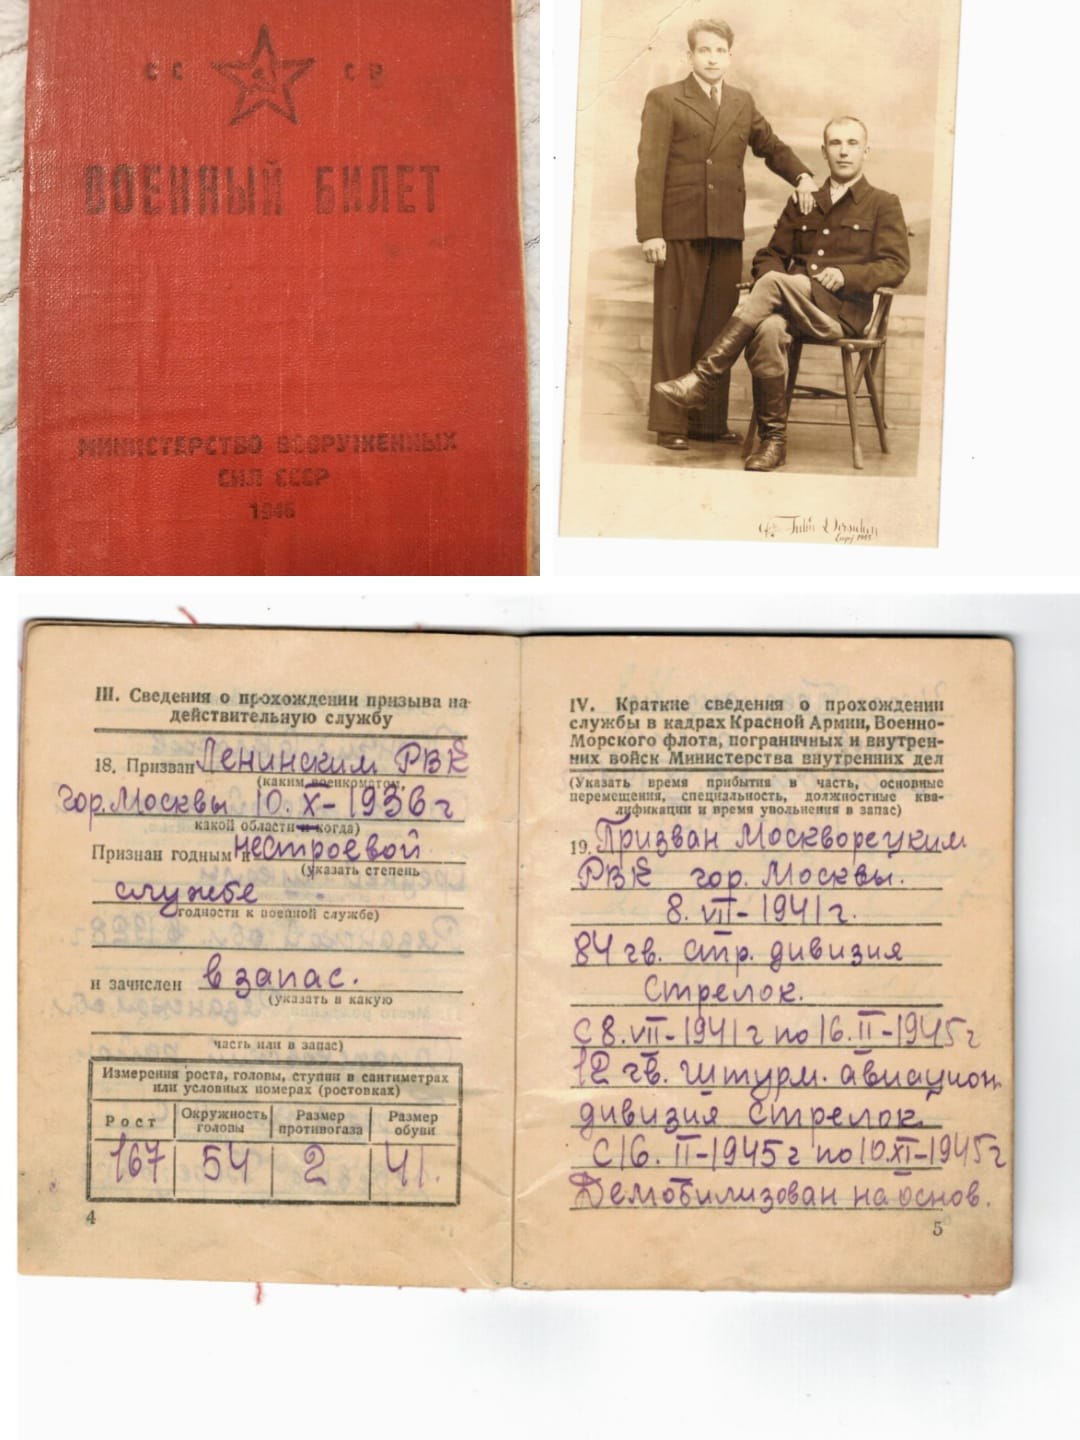 СС СР
ВОЕННЫЙ БИЛЕТ
МИНИСТЕРСТВО ВООРУЖЕННЫХ
СИЛ СССР
1946
III. Сведения о прохождении призыва на
действительную службу
18. Призван Ленинским РВК
(каким военкоматом,
гор. Москвы 10. X - 1936 г
какой области и когда)
Признан годным к нестроевой
(указать степень
службе
годности к военной службе)
и зачислен в запас.
(указать в какую
часть или в запас)
Измерения роста, головы, ступни в сантиметрах
или условных номерах (ростовках)
Рост Окружность головы Размер противогаза Размер обуви
167 54 2 41.
4
IV. Краткие сведения о прохождении
службы в кадрах Красной Армии, Военно-
Морского флота, пограничных и внутрен-
них войск Министерства внутренних дел
(Указать время прибытия в часть, основные
перемещения, специальность, должностные ква-
лификации и время увольнения в запас)
19. Призван Москворецким
РВК гор. Москвы.
8. VII - 1941 г.
84 гв. стр. дивизия
Стрелок.
С 8. VII - 1941 г по 16. II - 1945 г
12 гв. штурм. авиацион
дивизия Стрелок.
С 16. II - 1945 г по 10. XI - 1945 г
Демобилизован на основ.
5